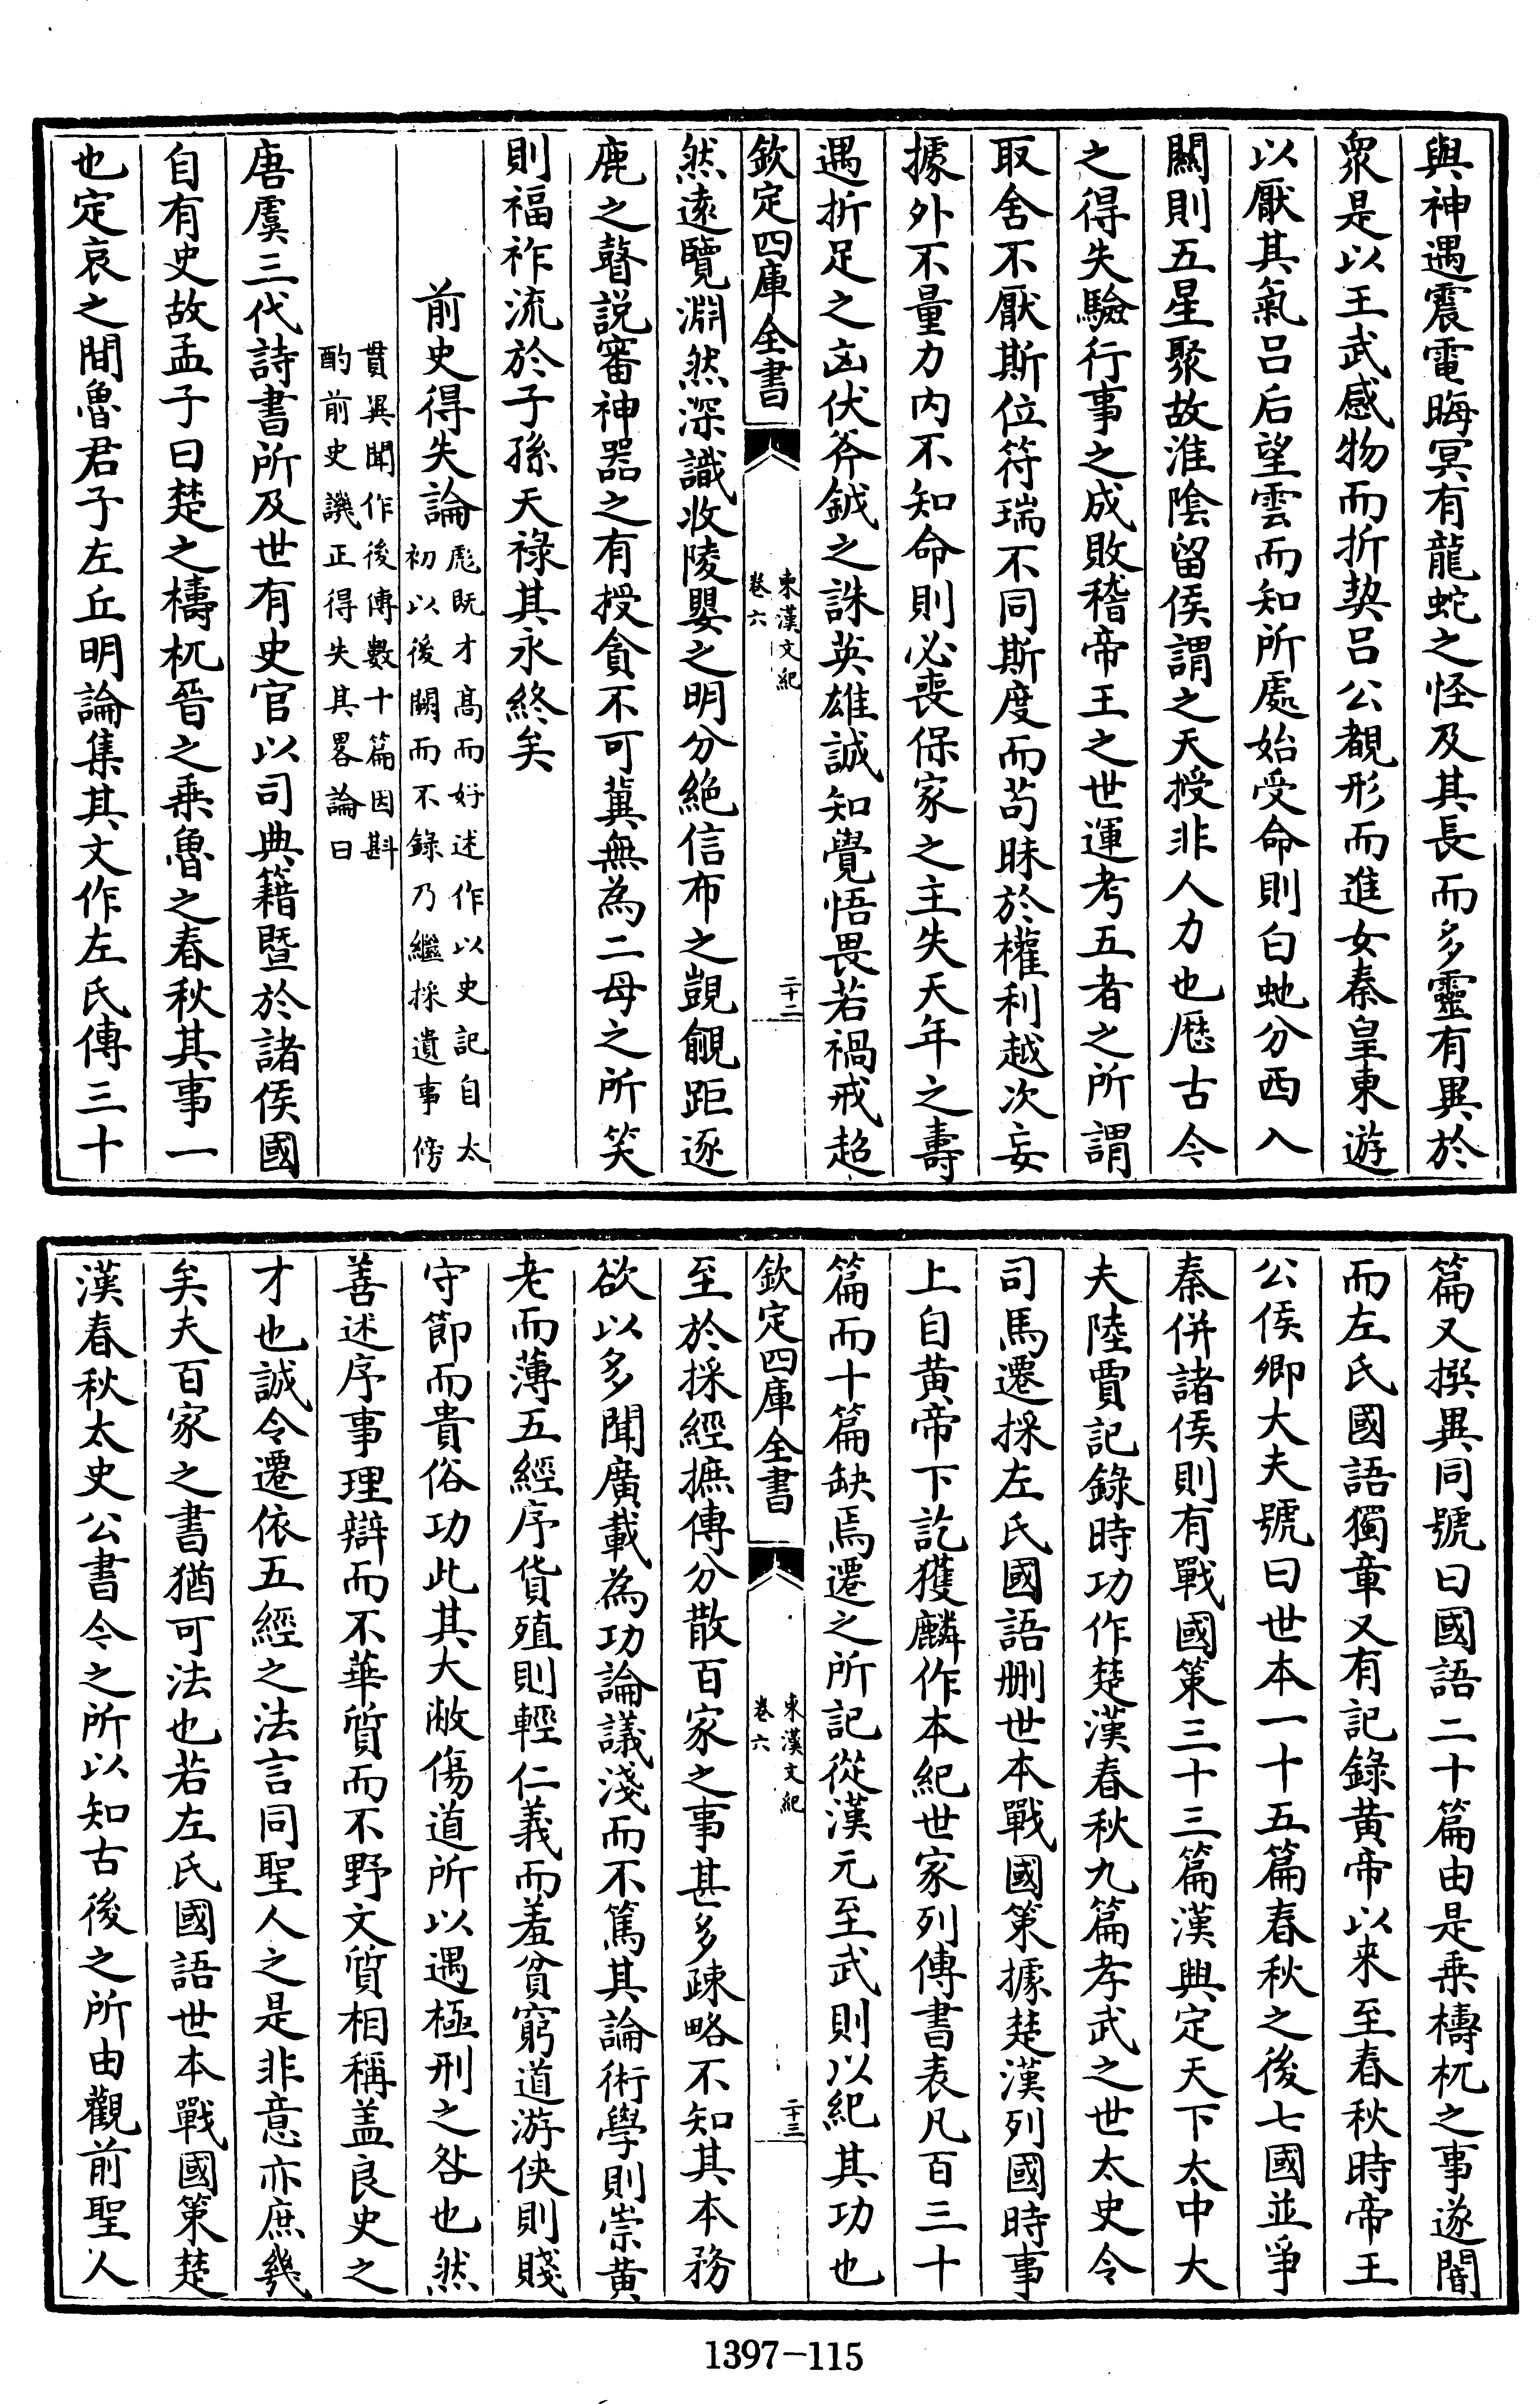 與神遇震電晦冥有龍蛇之怪及其長而多靈有異於
衆是以王武感物而折契呂公覩形而進女秦皇東遊
以厭其氣呂后望雲而知所處始受命則白虵分西入
關則五星聚故淮陰留侯謂之天授非人力也歴古今
之得失驗行事之成敗稽帝王之世運考五者之所謂
取舍不厭斯位符瑞不同斯度而苟昧於權利越次妄
據外不量力內不知命則必喪保家之主失天年之壽
遇折足之凶伏斧鉞之誅英雄誠知覺悟畏若禍戒超
欽定四庫全書
東漢文紀
卷六
二十二
然逺覽淵然深識收陵嬰之明分絶信布之覬覦距逐
鹿之瞽説審神器之有授貪不可冀無為二母之所笑
則福祚流於子孫天祿其永終矣
前史得失論
彪既才髙而好述作以史記自太
初以後闕而不錄乃繼採遺事傍
貫異聞作後傳數十篇因斟
酌前史譏正得失其畧論曰
唐虞三代詩書所及世有史官以司典籍暨於諸侯國
自有史故孟子曰楚之檮杌晉之乗魯之春秋其事一
也定哀之間魯君子左丘明論集其文作左氏傳三十
篇又撰異同號曰國語二十篇由是乗檮杌之事遂闇
而左氏國語獨章又有記錄黄帝以來至春秋時帝王
公侯卿大夫號曰世本一十五篇春秋之後七國並爭
秦併諸侯則有戰國策三十三篇漢興定天下太中大
夫陸賈記錄時功作楚漢春秋九篇孝武之世太史令
司馬遷採左氏國語刪世本戰國策據楚漢列國時事
上自黄帝下訖獲麟作本紀世家列傳書表凡百三十
篇而十篇缺焉遷之所記從漢元至武則以紀其功也
欽定四庫全書
東漢文紀
卷六
二十三
至於採經摭傳分散百家之事甚多疎略不知其本務
欲以多聞廣載為功論議淺而不篤其論術學則崇黄
老而薄五經序貨殖則輕仁義而羞貧窮道游俠則賤
守節而貴俗功此其大敝傷道所以遇極刑之咎也然
善述序事理辯而不華質而不野文質相稱盖良史之
才也誠令遷依五經之法言同聖人之是非意亦庶幾
矣夫百家之書猶可法也若左氏國語世本戰國策楚
漢春秋太史公書今之所以知古後之所由觀前聖人
1397-115